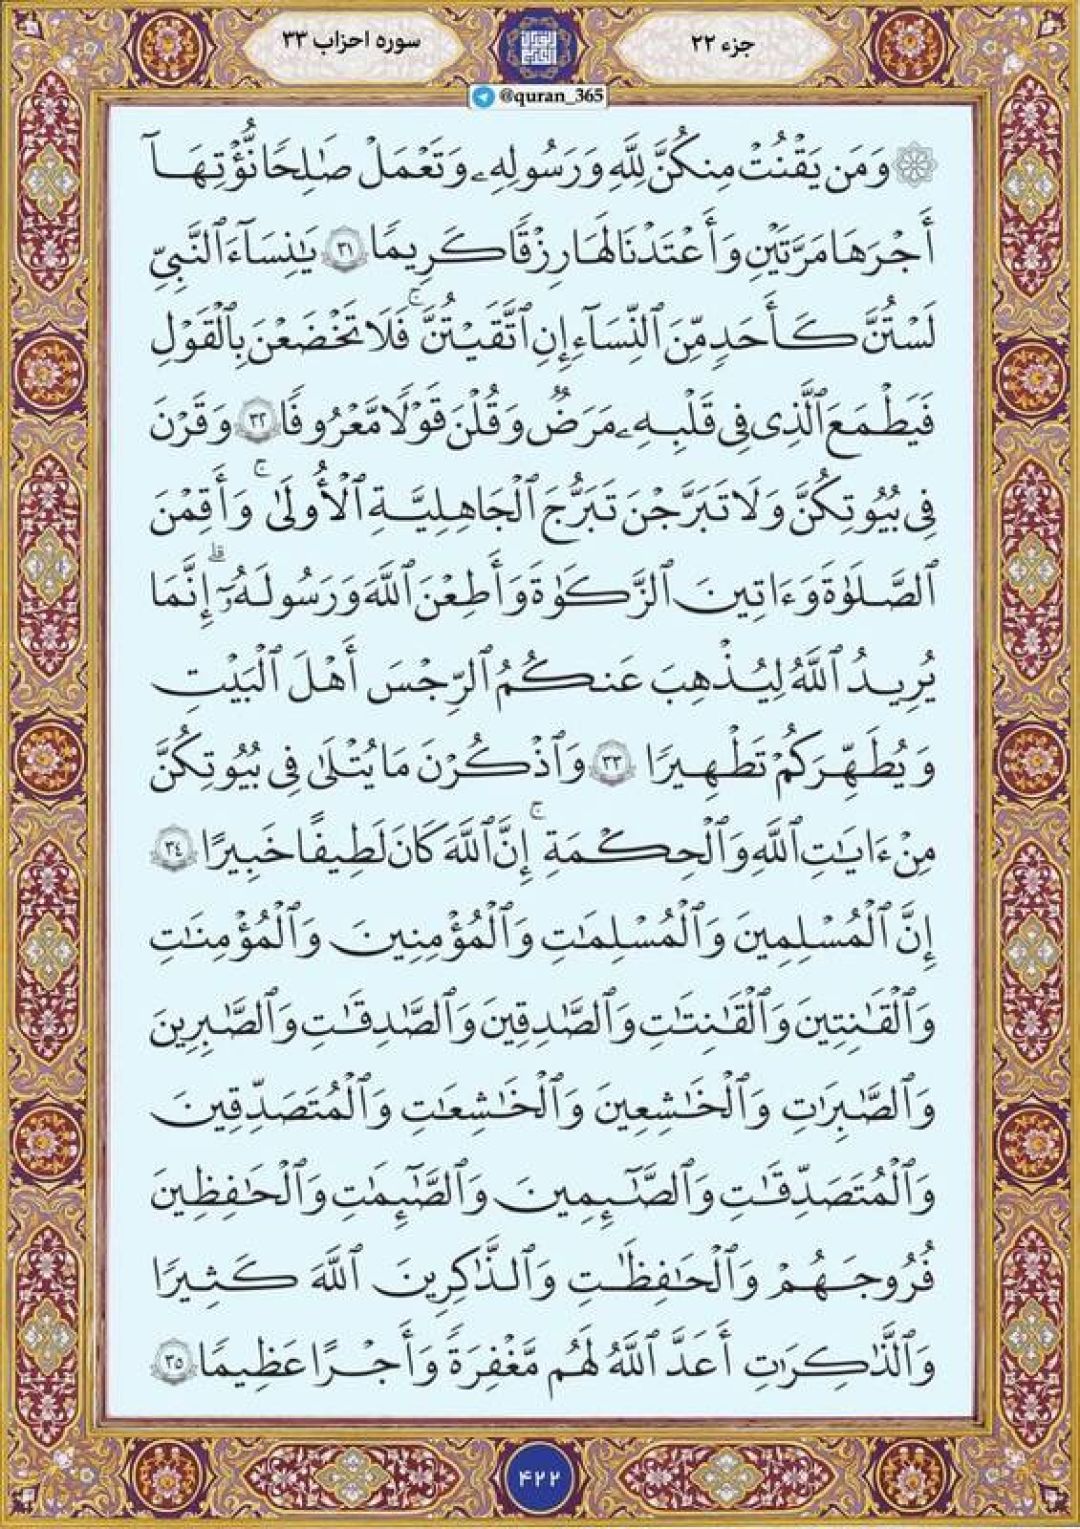 جزء ۲۲
سوره احزاب ۳۳
@quran_365
۞ وَمَن يَقْنُتْ مِنكُنَّ لِلَّهِ وَرَسُولِهِۦ وَتَعْمَلْ صَٰلِحًا نُّؤْتِهَآ
أَجْرَهَا مَرَّتَيْنِ وَأَعْتَدْنَا لَهَا رِزْقًا كَرِيمًا ٣١ يَٰنِسَآءَ ٱلنَّبِيِّ
لَسْتُنَّ كَأَحَدٍ مِّنَ ٱلنِّسَآءِ إِنِ ٱتَّقَيْتُنَّۚ فَلَا تَخْضَعْنَ بِٱلْقَوْلِ
فَيَطْمَعَ ٱلَّذِى فِى قَلْبِهِۦ مَرَضٌ وَقُلْنَ قَوْلًا مَّعْرُوفًا ٣٢ وَقَرْنَ
فِى بُيُوتِكُنَّ وَلَا تَبَرَّجْنَ تَبَرُّجَ ٱلْجَاهِلِيَّةِ ٱلْأُولَىٰۚ وَأَقِمْنَ
ٱلصَّلَوٰةَ وَءَاتِينَ ٱلزَّكَوٰةَ وَأَطِعْنَ ٱللَّهَ وَرَسُولَهُۥٓۗ إِنَّمَا
يُرِيدُ ٱللَّهُ لِيُذْهِبَ عَنكُمُ ٱلرِّجْسَ أَهْلَ ٱلْبَيْتِ
وَيُطَهِّرَكُمْ تَطْهِيرًا ٣٣ وَٱذْكُرْنَ مَا يُتْلَىٰ فِى بُيُوتِكُنَّ
مِنْ ءَايَٰتِ ٱللَّهِ وَٱلْحِكْمَةِۚ إِنَّ ٱللَّهَ كَانَ لَطِيفًا خَبِيرًا ٣٤
إِنَّ ٱلْمُسْلِمِينَ وَٱلْمُسْلِمَٰتِ وَٱلْمُؤْمِنِينَ وَٱلْمُؤْمِنَٰتِ
وَٱلْقَٰنِتِينَ وَٱلْقَٰنِتَٰتِ وَٱلصَّٰدِقِينَ وَٱلصَّٰدِقَٰتِ وَٱلصَّٰبِرِينَ
وَٱلصَّٰبِرَٰتِ وَٱلْخَٰشِعِينَ وَٱلْخَٰشِعَٰتِ وَٱلْمُتَصَدِّقِينَ
وَٱلْمُتَصَدِّقَٰتِ وَٱلصَّٰٓئِمِينَ وَٱلصَّٰٓئِمَٰتِ وَٱلْحَٰفِظِينَ
فُرُوجَهُمْ وَٱلْحَٰفِظَٰتِ وَٱلذَّٰكِرِينَ ٱللَّهَ كَثِيرًا
وَٱلذَّٰكِرَٰتِ أَعَدَّ ٱللَّهُ لَهُم مَّغْفِرَةً وَأَجْرًا عَظِيمًا ٣٥
۴۲۲